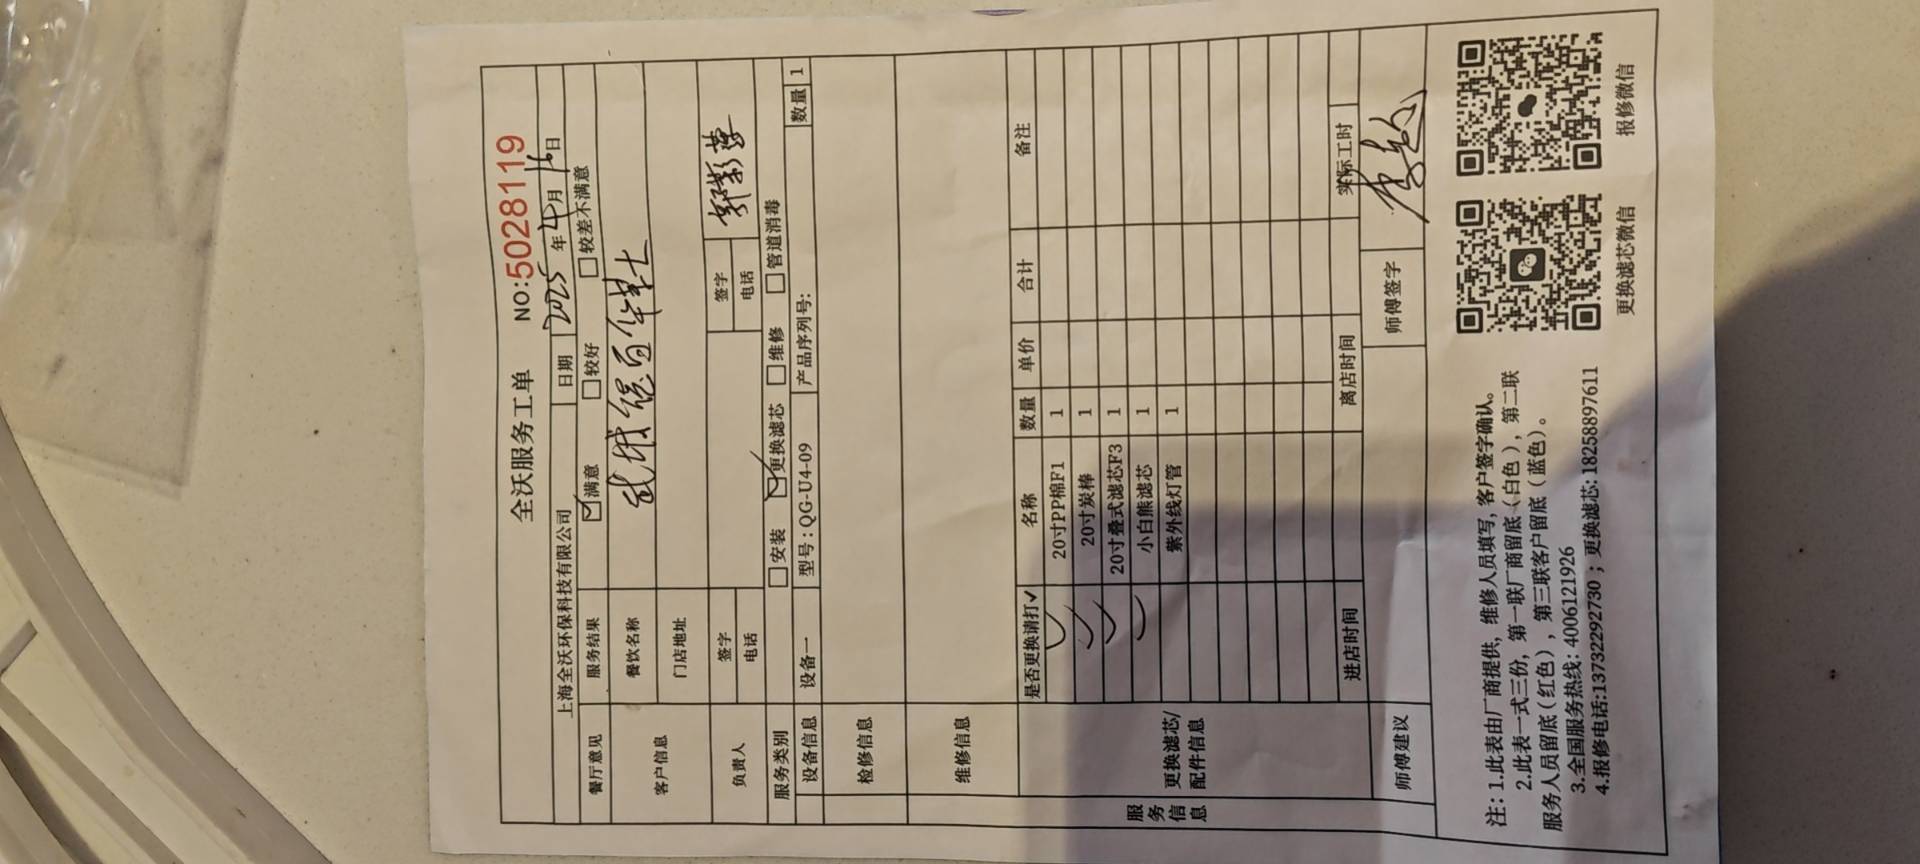 全沃服务工单 NO:5028119
上海全沃环保科技有限公司 日期 2025年4月16日
餐厅意见 服务结果 ☑满意 □较好 □较差不满意
客户信息 餐饮名称 武城银百华莱士
门店地址
负责人 签字 签字
电话 电话
服务类别 □安装 ☑更换滤芯 □维修 □管道消毒
设备信息 设备一 型号:QG-U4-09 产品序列号: 数量 1
服务信息
检修信息
维修信息
更换滤芯/配件信息
是否更换请打✓ 名称 数量 单价 合计 备注
✓ 20寸PP棉F1 1
✓ 20寸炭棒 1
✓ 20寸叠式滤芯F3 1
✓ 小白熊滤芯 1
紫外线灯管 1
进店时间 离店时间 实际工时
师傅建议 师傅签字
注:1.此表由厂商提供,维修人员填写,客户签字确认。
2.此表一式三份,第一联厂商留底(白色),第二联
服务人员留底(红色),第三联客户留底(蓝色)。
3.全国服务热线:4006121926
4.报修电话:13732292730;更换滤芯:18258897611
更换滤芯微信 报修微信